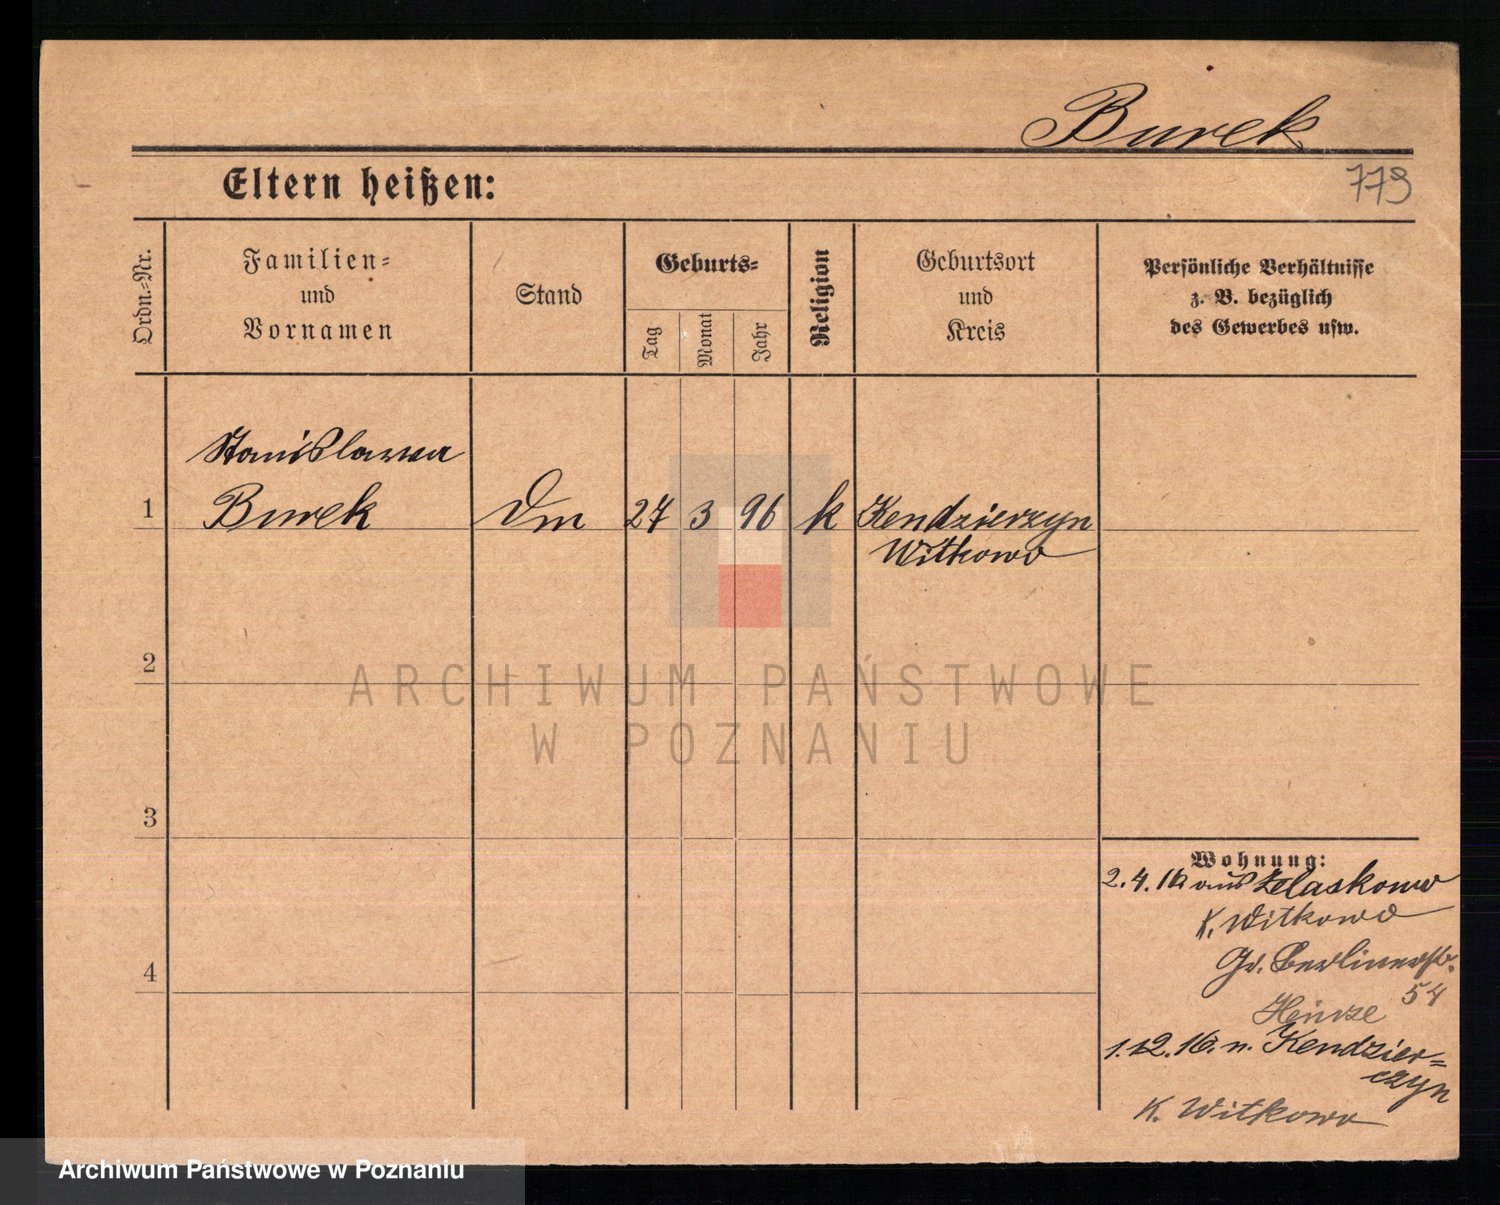 Burek
Eltern heißen:
779
Ordn.-Nr.
Familien-
und
Vornamen
Stand
Geburts-
Tag
Monat
Jahr
Religion
Geburtsort
und
Kreis
Persönliche Verhältnisse
z. B. bezüglich
des Gewerbes usw.
Stanislawa
1 Burek Dm 27 3 96 k Kendzierzyn
Witkowo
2
ARCHIWUM PAŃSTWOWE
W POZNANIU
3
Wohnung:
2.4.16 aus Zelaskowo
K. Witkowo
Gr. Berlinerstr.
54
1.12.16. n. Kendzier=
czyn
K. Witkowo
4
Archiwum Państwowe w Poznaniu